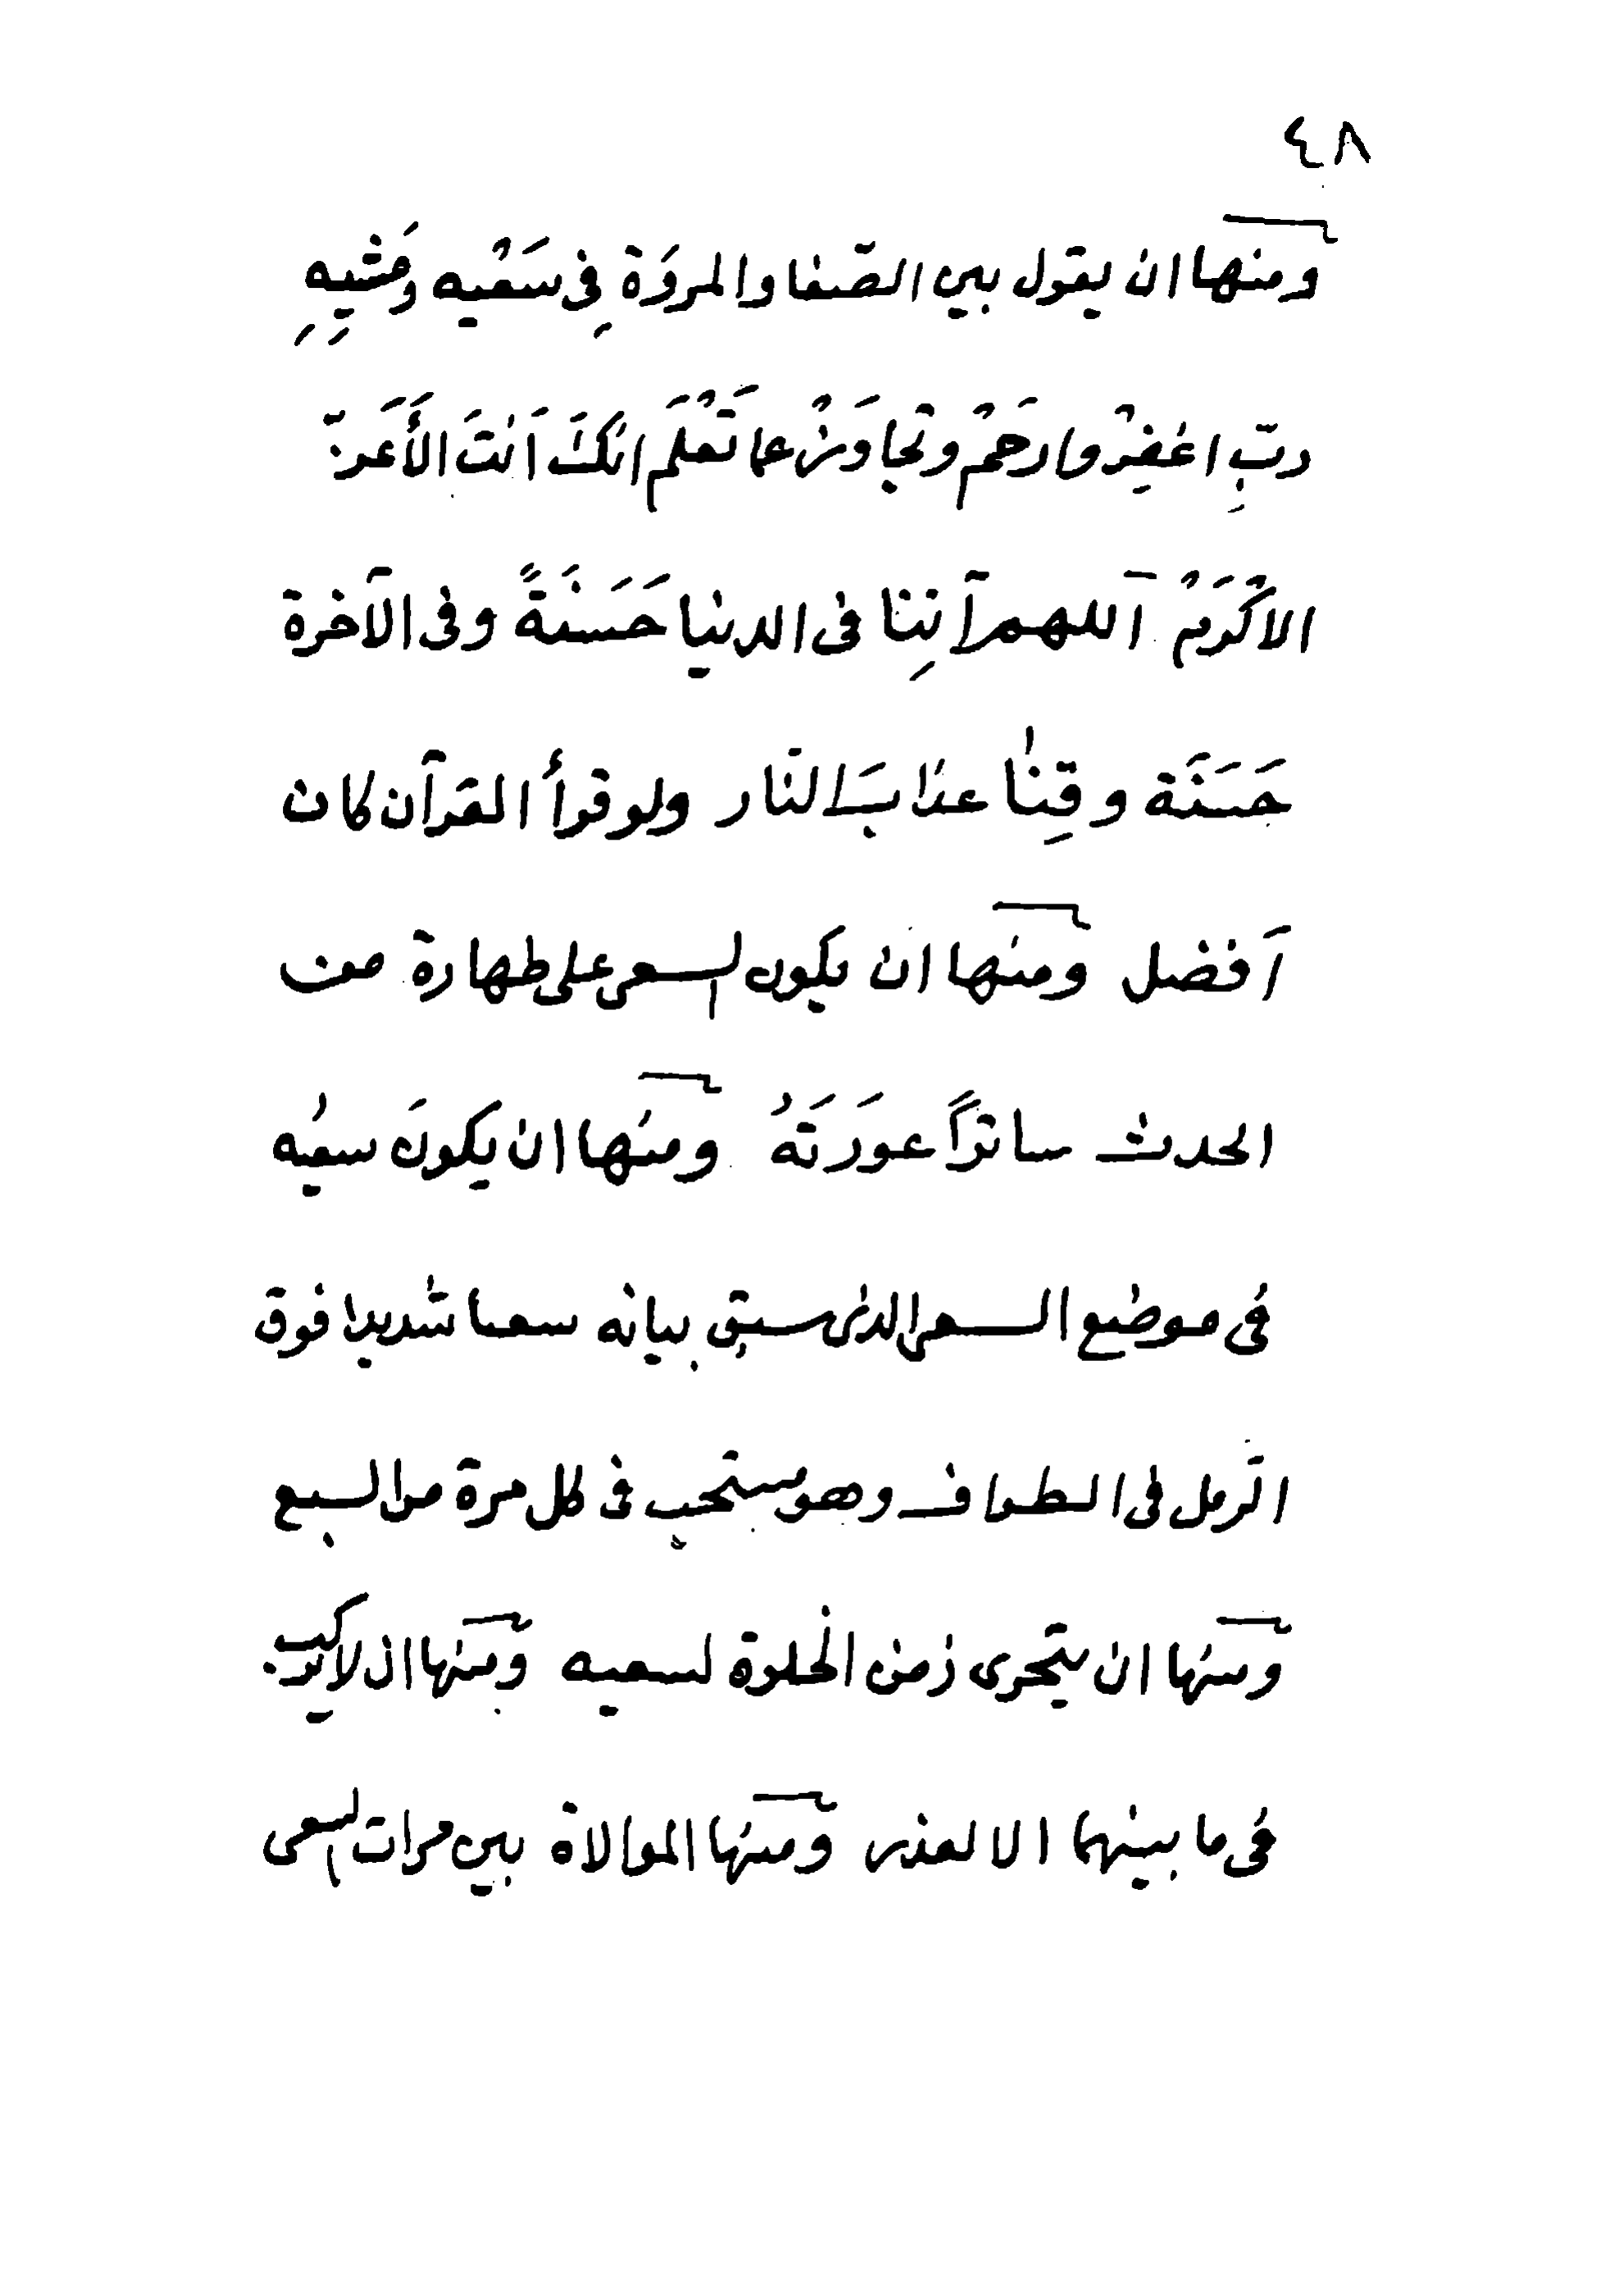 ٤٨
ومنها ان يقول بين الصّفا والمروَة فِى سَعْيه وَمَشيِهِ
ربِّ اغفِرْ وارحَمْ وتجاوَزْ عما تَعْلَم انكَ اَنتَ الأَعَزّ
الاكْرَمُ اللهم آتِنا فى الدنيا حَسَنَةً وفى الآخرة
حَسَنَة وقِنا عذابَ النّار ولو قرأ القرآن كان
اَفضل ومنها ان يكون السعى على طهارة من
الحدث ساتراً عورَتَهُ ومنها ان يكونَ سعيُه
فى موضع السعى الذى سبق بيانه سعيا شديدا فوق
الرّمل فى الطواف وهو مستحب فى كل مرة من السبع
ومنها ان يتحرى زمن الخلوة لسعيه ومنها ان لا يركب
فى ما بينهما الا لعذر ومنها الموالاة بين مرات السعى